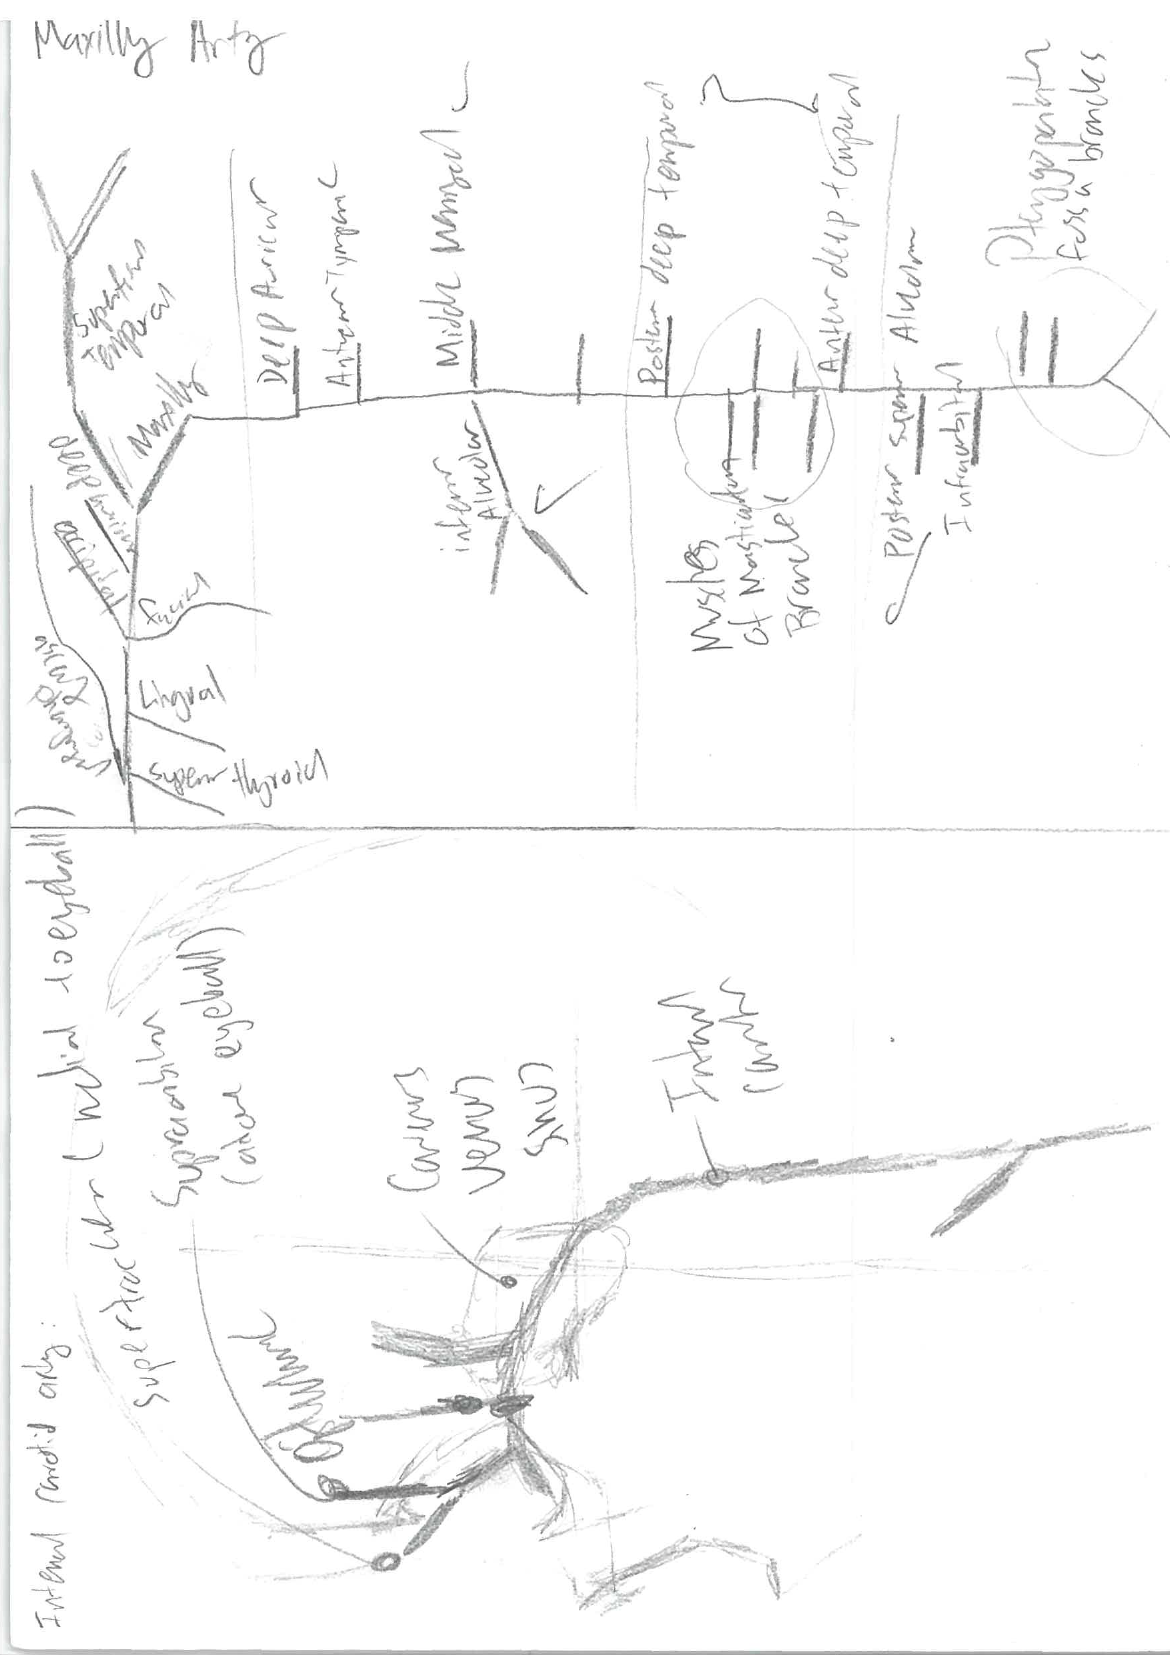 Maxilly Arty
Superficial
temporal
Maxilly
Facial
Lingual
Superior thyroid
Deep Auricular
Anterior Tympanic
Middle Meningeal
Inferior
Alveolar
Posterior deep temporal
Muscles
of Mastication
Branches
Anterior deep temporal
Posterior superior Alveolar
Infraorbital
Pterygopalatine
fossa branches
Internal carotid arty:
Supertrochlear (medial to eyeball)
Supraorbital
(above eyeball)
Ophthalmic
Cavernous
venous
sinus
Internal
Carotid